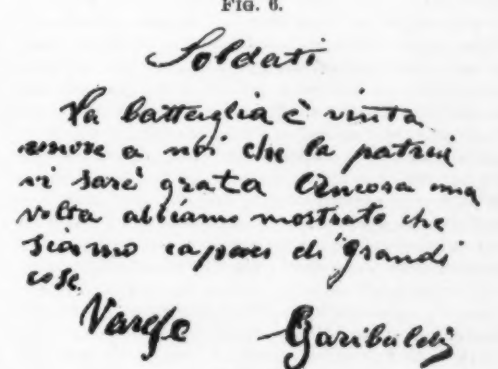 FIG. 6.
Soldati
La battaglia è vinta
onore a noi che la patria
vi sarà grata Ancora una
volta abbiamo mostrato che
siamo capaci di grandi
cose.
Varese Garibaldi